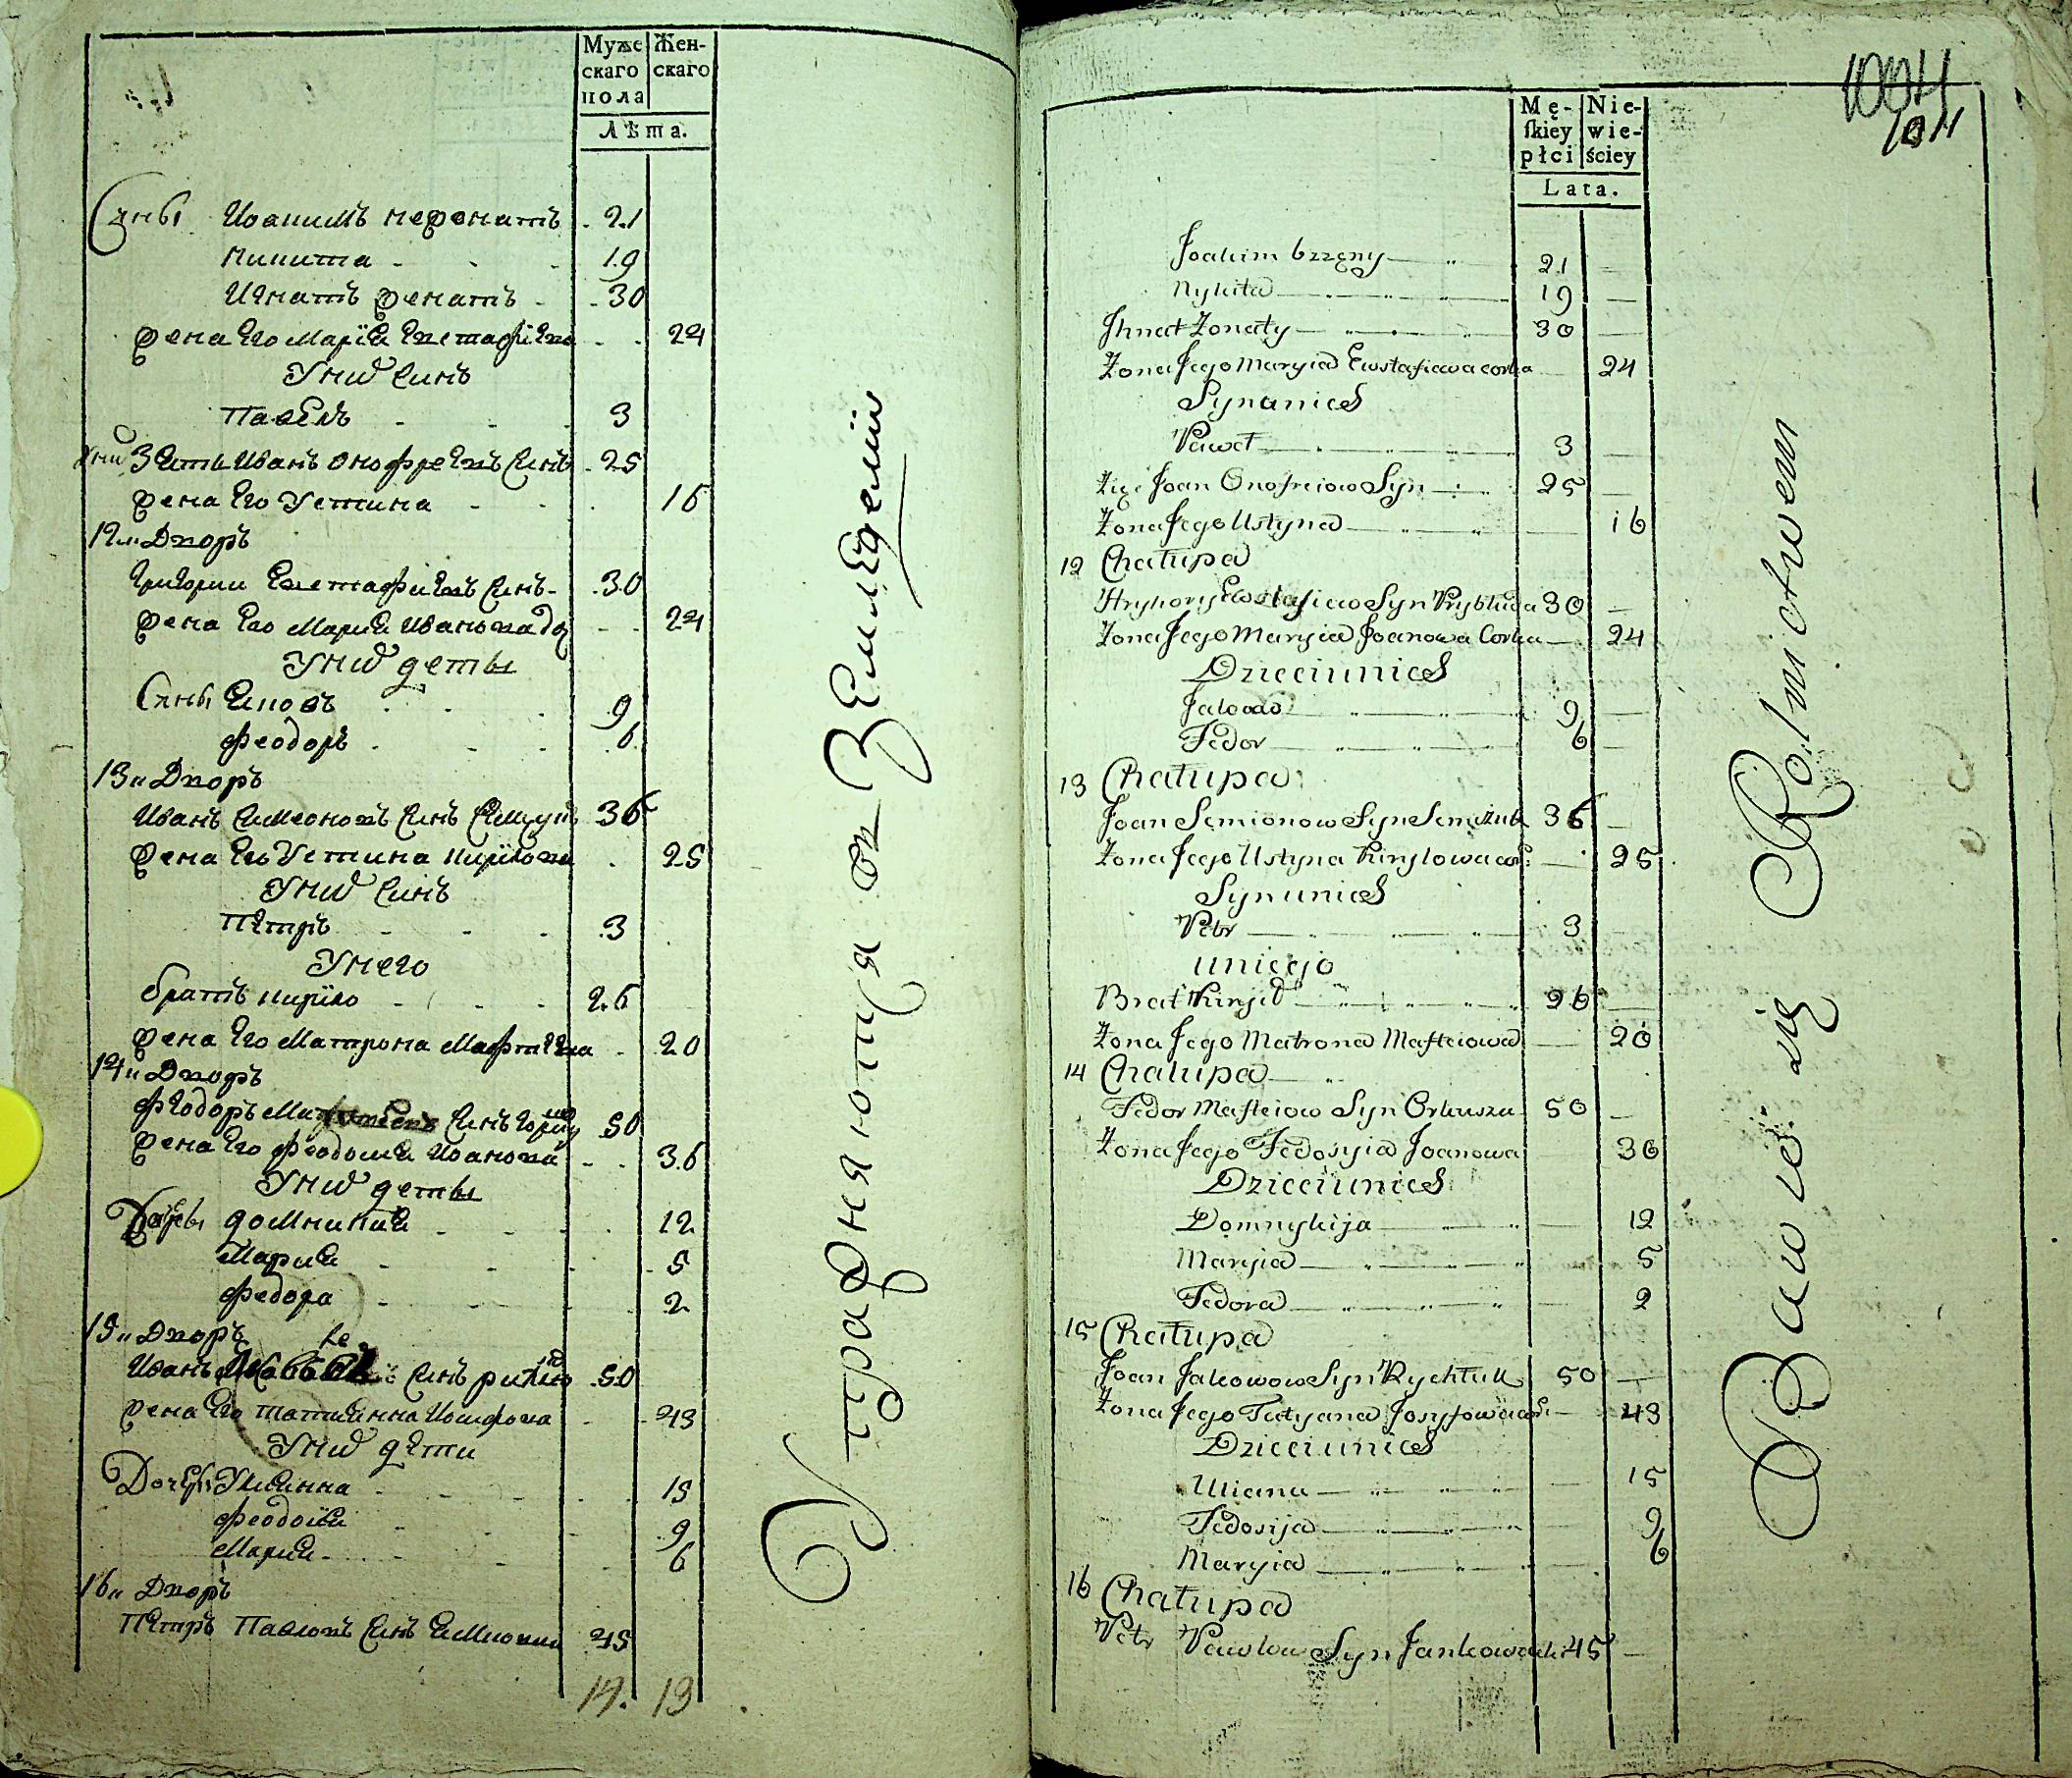 Муже Жен-
скаго скаго
пола
Лѣта.
Сыны Иоакимъ неженатъ 21
Никита 19
Игнатъ женатъ 30
жена Его Марїя Евстафїева 24
У них Синъ
Павелъ 3
У них Зять Иванъ Онофреевъ Синъ 25
жена Его Устина 16
12и Дворъ
Григории Евстафиевъ Синъ 30
жена Его Мария Иванова до 24
У них дети
Сыны Яковъ 9
Феодоръ 6
13и Дворъ
Иванъ Симеоновъ Синъ 36
жена Его Устина Кирїлова 25
У них Синъ
Петръ 3
У него
братъ Кирїло 26
жена Его Матрона Мафтеева 20
14и Дворъ
Феодоръ Синъ 50
жена Его Феодосия Иванова 36
У них дети
Дочеры Домникия 12
Мария 5
Федора 2
15и Дворъ
Иванъ Синъ 50
жена Его Татиянна Иосифова 43
У них дети
Дочеры Улиянна 15
Феодосия 9
Мария 6
16и Дворъ
Петръ Павловъ Синъ 45
14. 13
Упражняются в Земледелїи
1004
104
Mę- Nie-
skiey wie-
płci ściey
Lata.
Joakim bzzęny 21
Nykita 19
Jhnat Zonaty 30
Zona Jego Maryia Ewstafiewa corka 24
Syn u nich
Paweł 3
Zięć Joan Onofreiow Syn 25
Zona Jego Ustyna 16
12 Chałupa
Hryhory Ewstafiew Syn Prybłuda 30
Zona Jego Maryia Joanowa Corka 24
Dzieci u nich
Jakow 9
Fedor 6
13 Chałupa
Joan Semionow Syn 36
Zona Jego Ustyna Kiryłowa cor: 25
Syn u nich
Petr 3
u niego
Brat Kirył 26
Zona Jego Matrona Mafteiowa 20
14 Chałupa
Fedor Mafteiow Syn 50
Zona Jego Fedosyia Joanowa 36
Dzieci u nich
Domnykija 12
Maryia 5
Fedora 2
15 Chałupa
Joan Jakowow Syn 50
Zona Jego Tatyana Josyfowa cor: 43
Dzieci u nich
Uliana 15
Fedosija 9
Maryia 6
16 Chałupa
Petr Pawlow Syn Jankowski 45
Bawią się Rolnictwem